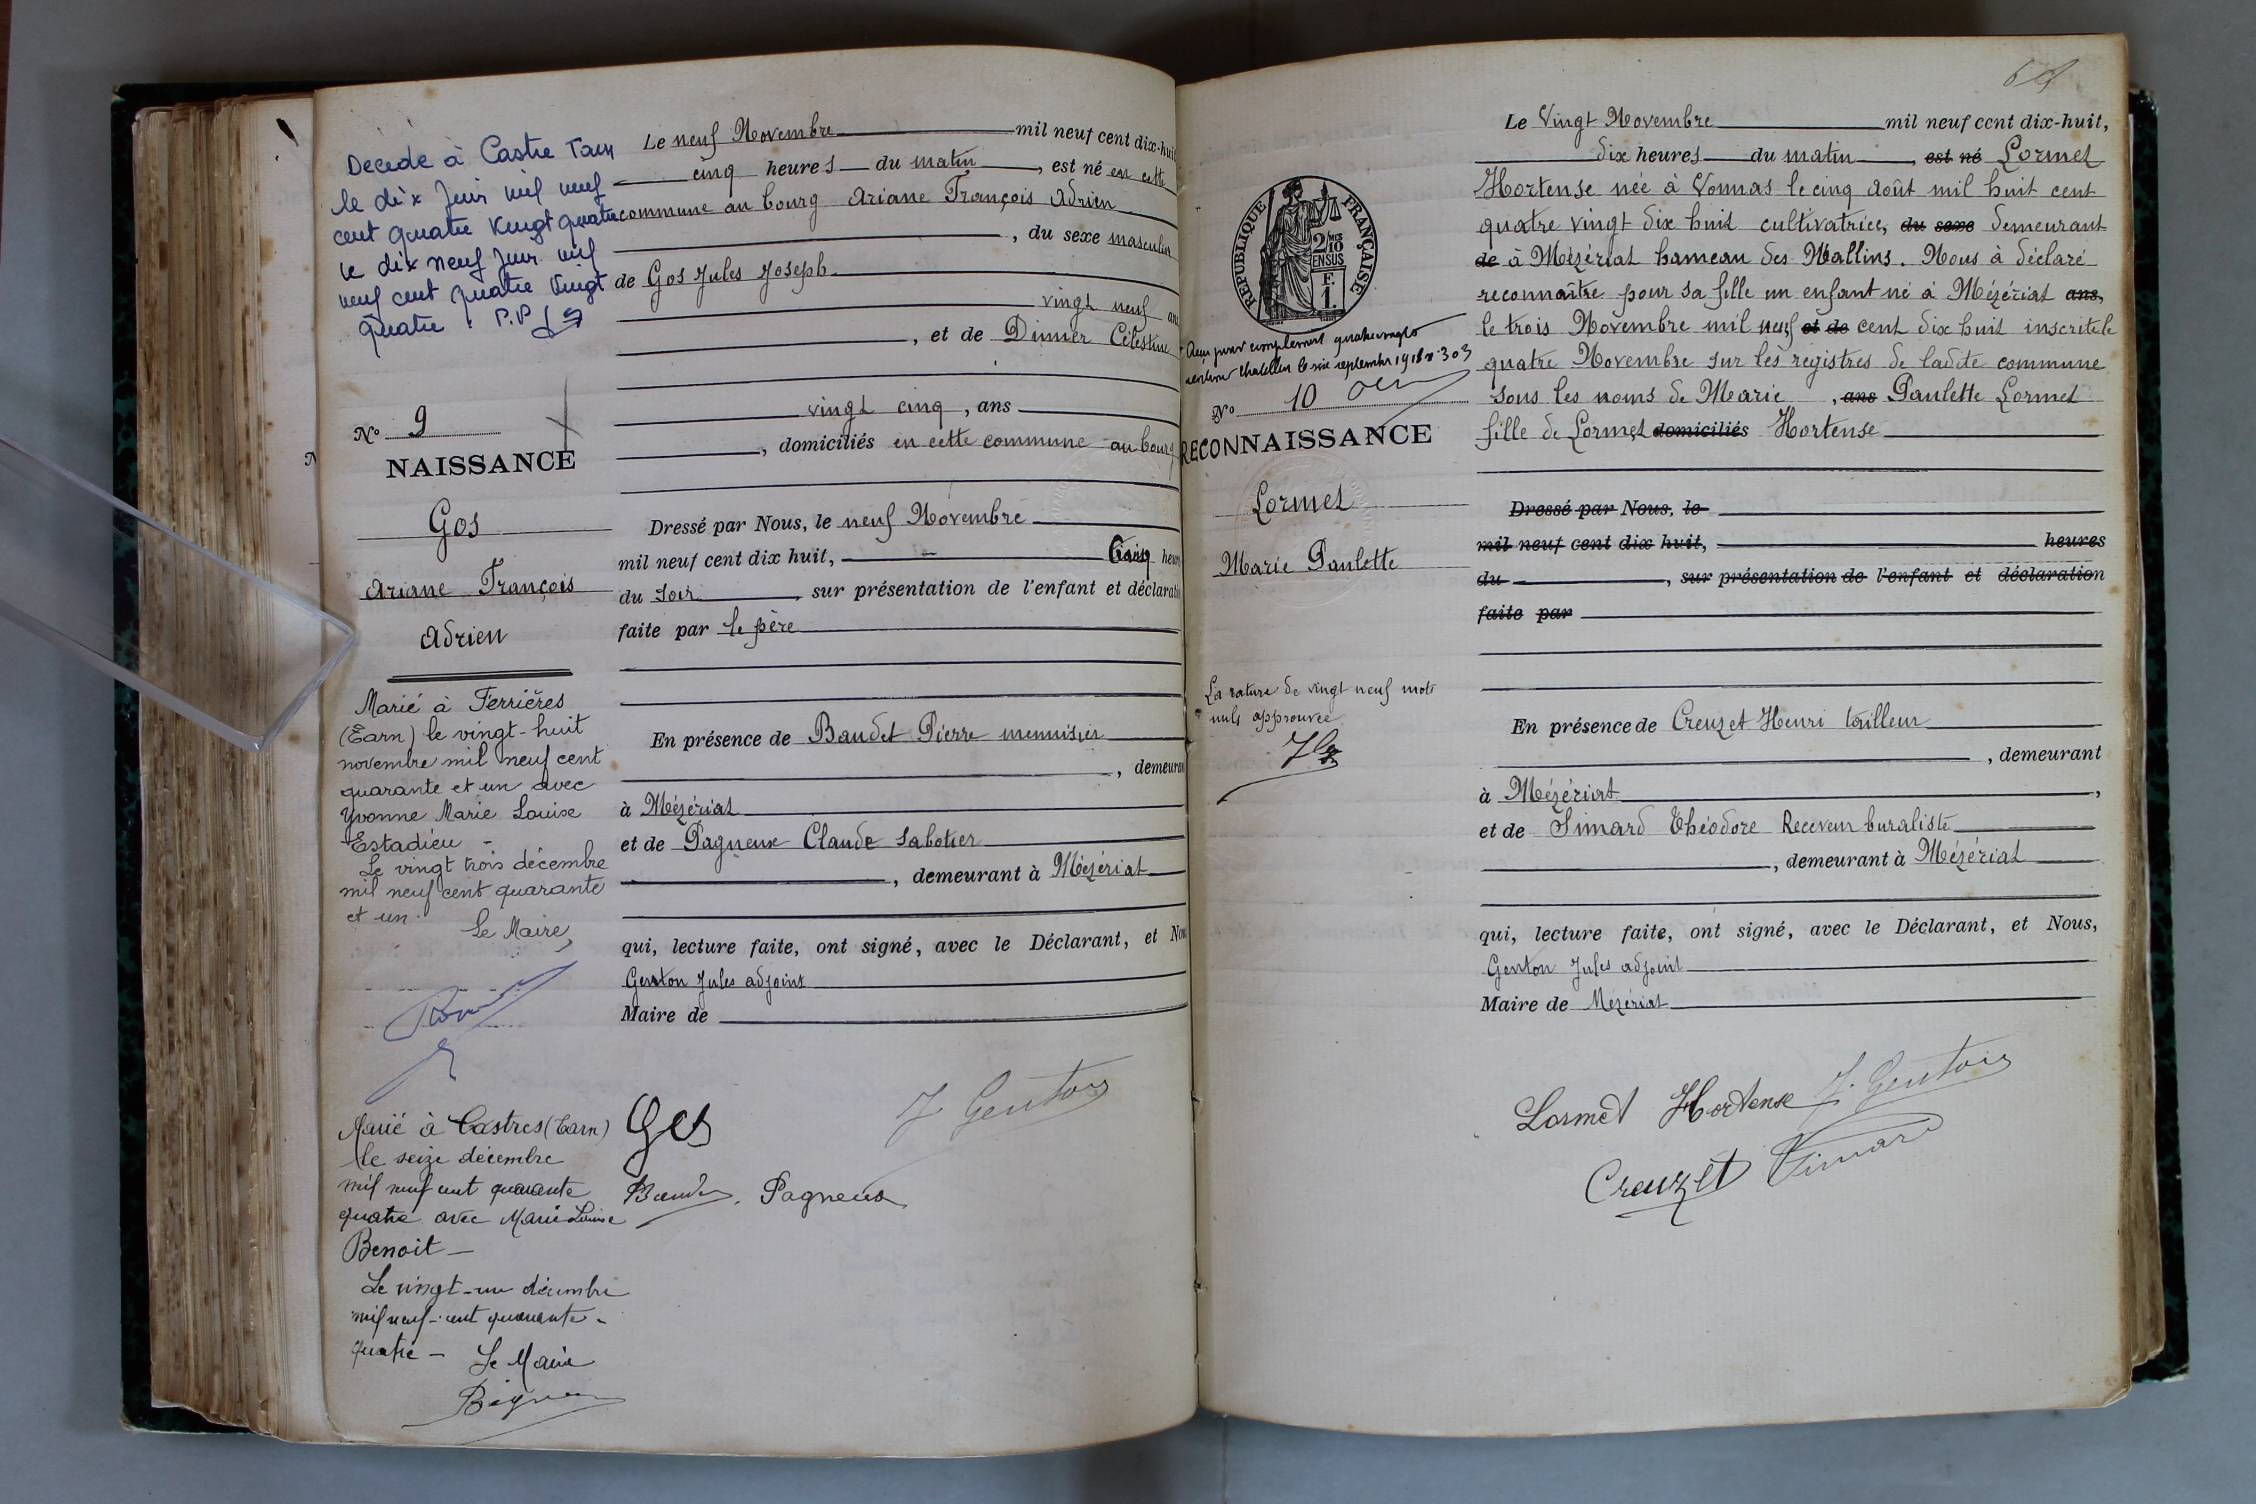 Decede à Castre Tarn
le dix Juin mil neuf
cent quatre vingt quatre
le dix neuf Juin mil
neuf cent quatre vingt
quatre . P.P
N° 9
NAISSANCE
Gos
Ariane François
Adrien
Marié à Ferrières
(Tarn) le vingt-huit
novembre mil neuf cent
quarante et un avec
Yvonne Marie Louise
Estadieu -
Le vingt trois décembre
mil neuf cent quarante
et un.
Le Maire,
Marié à Castres (Tarn)
le seize décembre
mil neuf cent quarante
quatre avec Marie Louise
Benoit -
Le vingt-un décembre
mil neuf-cent quarante-
quatre - Le Maire
Le neuf Novembre mil neuf cent dix-huit
cinq heures du matin, est né en cette
commune au bourg Ariane François Adrien
, du sexe masculin
de Gos Jules Joseph
vingt neuf ans
, et de Dinner Célestine
vingt cinq, ans
, domiciliés en cette commune au bourg
Dressé par Nous, le neuf Novembre
mil neuf cent dix huit, Cinq heures
du soir, sur présentation de l'enfant et déclaration
faite par le père
En présence de Baudet Pierre menuisier
, demeurant
à Mézériat
et de Pagneux Claude sabotier
, demeurant à Mézériat
qui, lecture faite, ont signé, avec le Déclarant, et Nous
Genton Jules adjoint
Maire de
Gos
J Genton
Baudet. Pagneux
RÉPUBLIQUE FRANÇAISE
2/10 MES
EN SUS
F.
1.
N° 10
RECONNAISSANCE
Lormet
Marie Paulette
La rature de vingt neuf mots
nuls approuvée
Le Vingt Novembre mil neuf cent dix-huit,
dix heures du matin, est né Lormet
Hortense née à Vonnas le cinq Août mil huit cent
quatre vingt dix huit cultivatrice, du sexe demeurant
de à Mézériat hameau des Mallins. Nous à déclaré
reconnaître pour sa fille un enfant né à Mézériat ans,
le trois Novembre mil neuf et de cent dix huit inscrite le
quatre Novembre sur les registres de ladite commune
sous les noms de Marie, ans Paulette Lormet
fille de Lormet domiciliés Hortense
Dressé par Nous, le
mil neuf cent dix huit, heures
du , sur présentation de l'enfant et déclaration
faite par
En présence de Creuzet Henri tailleur
, demeurant
à Mézériat,
et de Simard Théodore Receveur buraliste
, demeurant à Mézériat
qui, lecture faite, ont signé, avec le Déclarant, et Nous,
Genton Jules adjoint
Maire de Mézériat
Lormet Hortense J. Genton
Creuzet Simard